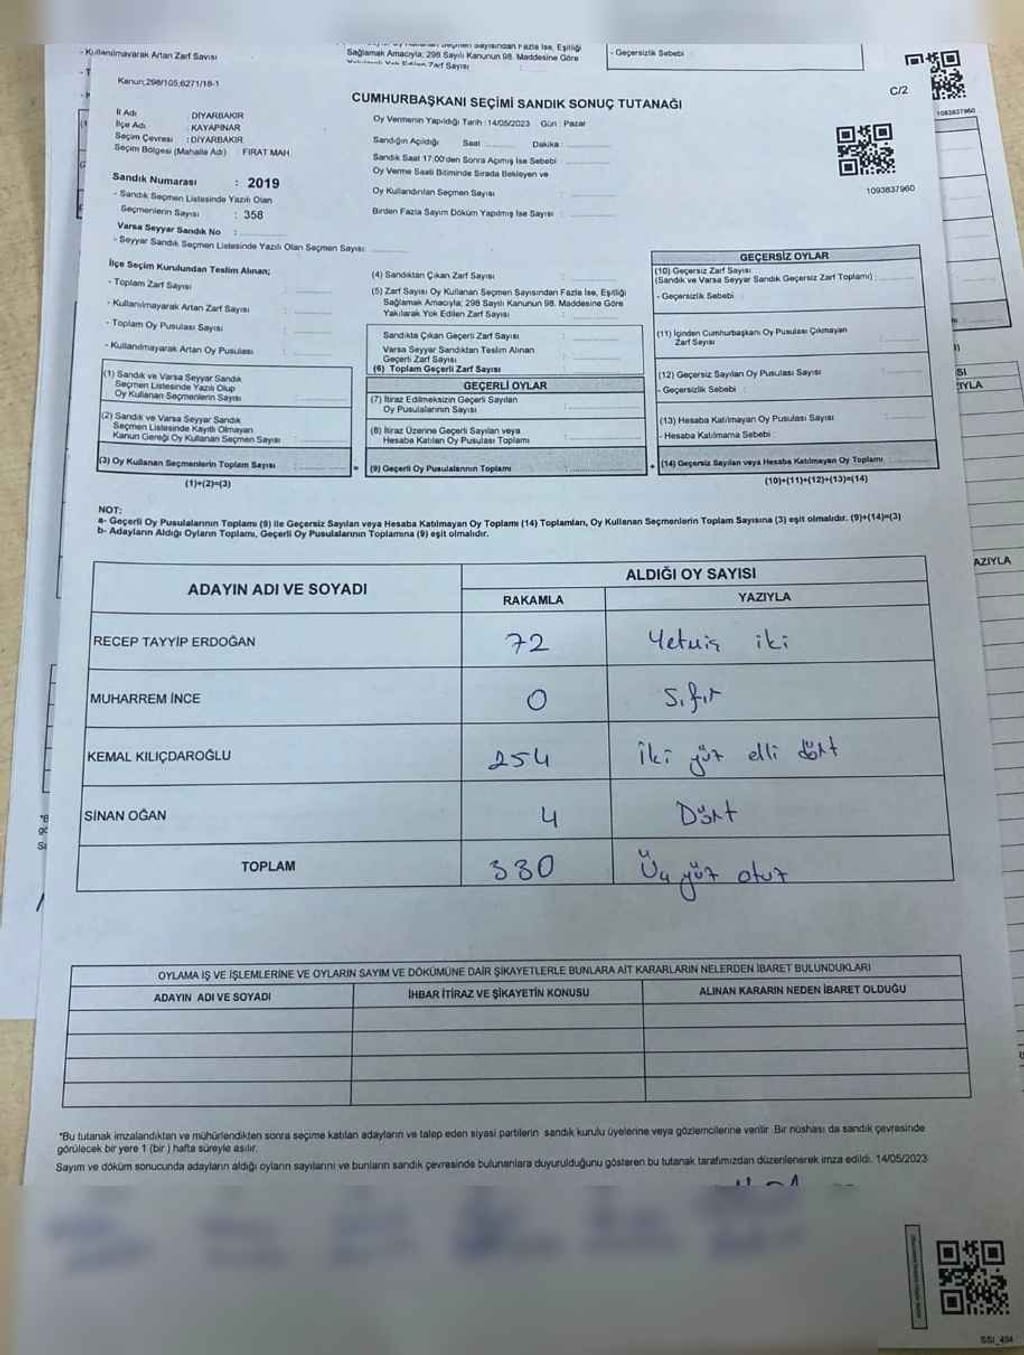 - Kullanılmayarak Artan Zarf Sayısı
Sağlamak Amacıyla; 298 Sayılı Kanunun 98. Maddesine Göre
- Geçersizlik Sebebi
Kanun;298/105,6271/18-1
C/2
1093837960
CUMHURBAŞKANI SEÇİMİ SANDIK SONUÇ TUTANAĞI
İl Adı : DİYARBAKIR
İlçe Adı : KAYAPINAR
Seçim Çevresi : DİYARBAKIR
Seçim Bölgesi (Mahalle Adı) FIRAT MAH.
Sandık Numarası : 2019
- Sandık Seçmen Listesinde Yazılı Olan
Seçmenlerin Sayısı : 358
Varsa Seyyar Sandık No :
- Seyyar Sandık Seçmen Listesinde Yazılı Olan Seçmen Sayısı:
Oy Vermenin Yapıldığı Tarih :14/05/2023 Gün : Pazar
Sandığın Açıldığı Saat Dakika :
Sandık Saat 17.00'den Sonra Açılmış İse Sebebi :
Oy Verme Saati Bitiminde Sırada Bekleyen ve
Oy Kullandırılan Seçmen Sayısı :
Birden Fazla Sayım Döküm Yapılmış İse Sayısı :
1093837960
İlçe Seçim Kurulundan Teslim Alınan;
- Toplam Zarf Sayısı :
- Kullanılmayarak Artan Zarf Sayısı :
- Toplam Oy Pusulası Sayısı :
- Kullanılmayarak Artan Oy Pusulası :
(1) Sandık ve Varsa Seyyar Sandık
Seçmen Listesinde Yazılı Olup
Oy Kullanan Seçmenlerin Sayısı :
(2) Sandık ve Varsa Seyyar Sandık
Seçmen Listesinde Kayıtlı Olmayan
Kanun Gereği Oy Kullanan Seçmen Sayısı :
(3) Oy Kullanan Seçmenlerin Toplam Sayısı :
(1)+(2)=(3)
(4) Sandıktan Çıkan Zarf Sayısı :
(5) Zarf Sayısı Oy Kullanan Seçmen Sayısından Fazla İse, Eşitliği
Sağlamak Amacıyla; 298 Sayılı Kanunun 98. Maddesine Göre
Yakılarak Yok Edilen Zarf Sayısı :
Sandıkta Çıkan Geçerli Zarf Sayısı :
Varsa Seyyar Sandıktan Teslim Alınan
Geçerli Zarf Sayısı :
(6) Toplam Geçerli Zarf Sayısı :
GEÇERLİ OYLAR
(7) İtiraz Edilmeksizin Geçerli Sayılan
Oy Pusulalarının Sayısı :
(8) İtiraz Üzerine Geçerli Sayılan veya
Hesaba Katılan Oy Pusulası Toplamı :
= (9) Geçerli Oy Pusulalarının Toplamı :
GEÇERSİZ OYLAR
(10) Geçersiz Zarf Sayısı
(Sandık ve Varsa Seyyar Sandık Geçersiz Zarf Toplamı) :
- Geçersizlik Sebebi :
(11) İçinden Cumhurbaşkanı Oy Pusulası Çıkmayan
Zarf Sayısı :
(12) Geçersiz Sayılan Oy Pusulası Sayısı :
- Geçersizlik Sebebi :
(13) Hesaba Katılmayan Oy Pusulası Sayısı :
- Hesaba Katılmama Sebebi :
+ (14) Geçersiz Sayılan veya Hesaba Katılmayan Oy Toplamı :
(10)+(11)+(12)+(13)=(14)
NOT:
a- Geçerli Oy Pusulalarının Toplamı (9) ile Geçersiz Sayılan veya Hesaba Katılmayan Oy Toplamı (14) Toplamları, Oy Kullanan Seçmenlerin Toplam Sayısına (3) eşit olmalıdır. (9)+(14)=(3)
b- Adayların Aldığı Oyların Toplamı, Geçerli Oy Pusulalarının Toplamına (9) eşit olmalıdır.
ADAYIN ADI VE SOYADI ALDIĞI OY SAYISI
RAKAMLA YAZIYLA
RECEP TAYYİP ERDOĞAN 72 Yetmiş iki
MUHARREM İNCE 0 Sıfır
KEMAL KILIÇDAROĞLU 254 İki yüz elli dört
SİNAN OĞAN 4 Dört
TOPLAM 330 Üç yüz otuz
AZIYLA
OYLAMA İŞ VE İŞLEMLERİNE VE OYLARIN SAYIM VE DÖKÜMÜNE DAİR ŞİKAYETLERLE BUNLARA AİT KARARLARIN NELERDEN İBARET BULUNDUKLARI
ADAYIN ADI VE SOYADI İHBAR İTİRAZ VE ŞİKAYETİN KONUSU ALINAN KARARIN NEDEN İBARET OLDUĞU
*Bu tutanak imzalandıktan ve mühürlendikten sonra seçime katılan adayların ve talep eden siyasi partilerin sandık kurulu üyelerine veya gözlemcilerine verilir. Bir nüshası da sandık çevresinde
görülecek bir yere 1 (bir ) hafta süreyle asılır.
Sayım ve döküm sonucunda adayların aldığı oyların sayılarını ve bunların sandık çevresinde bulunanlara duyurulduğunu gösteren bu tutanak tarafımızdan düzenlenerek imza edildi. 14/05/2023